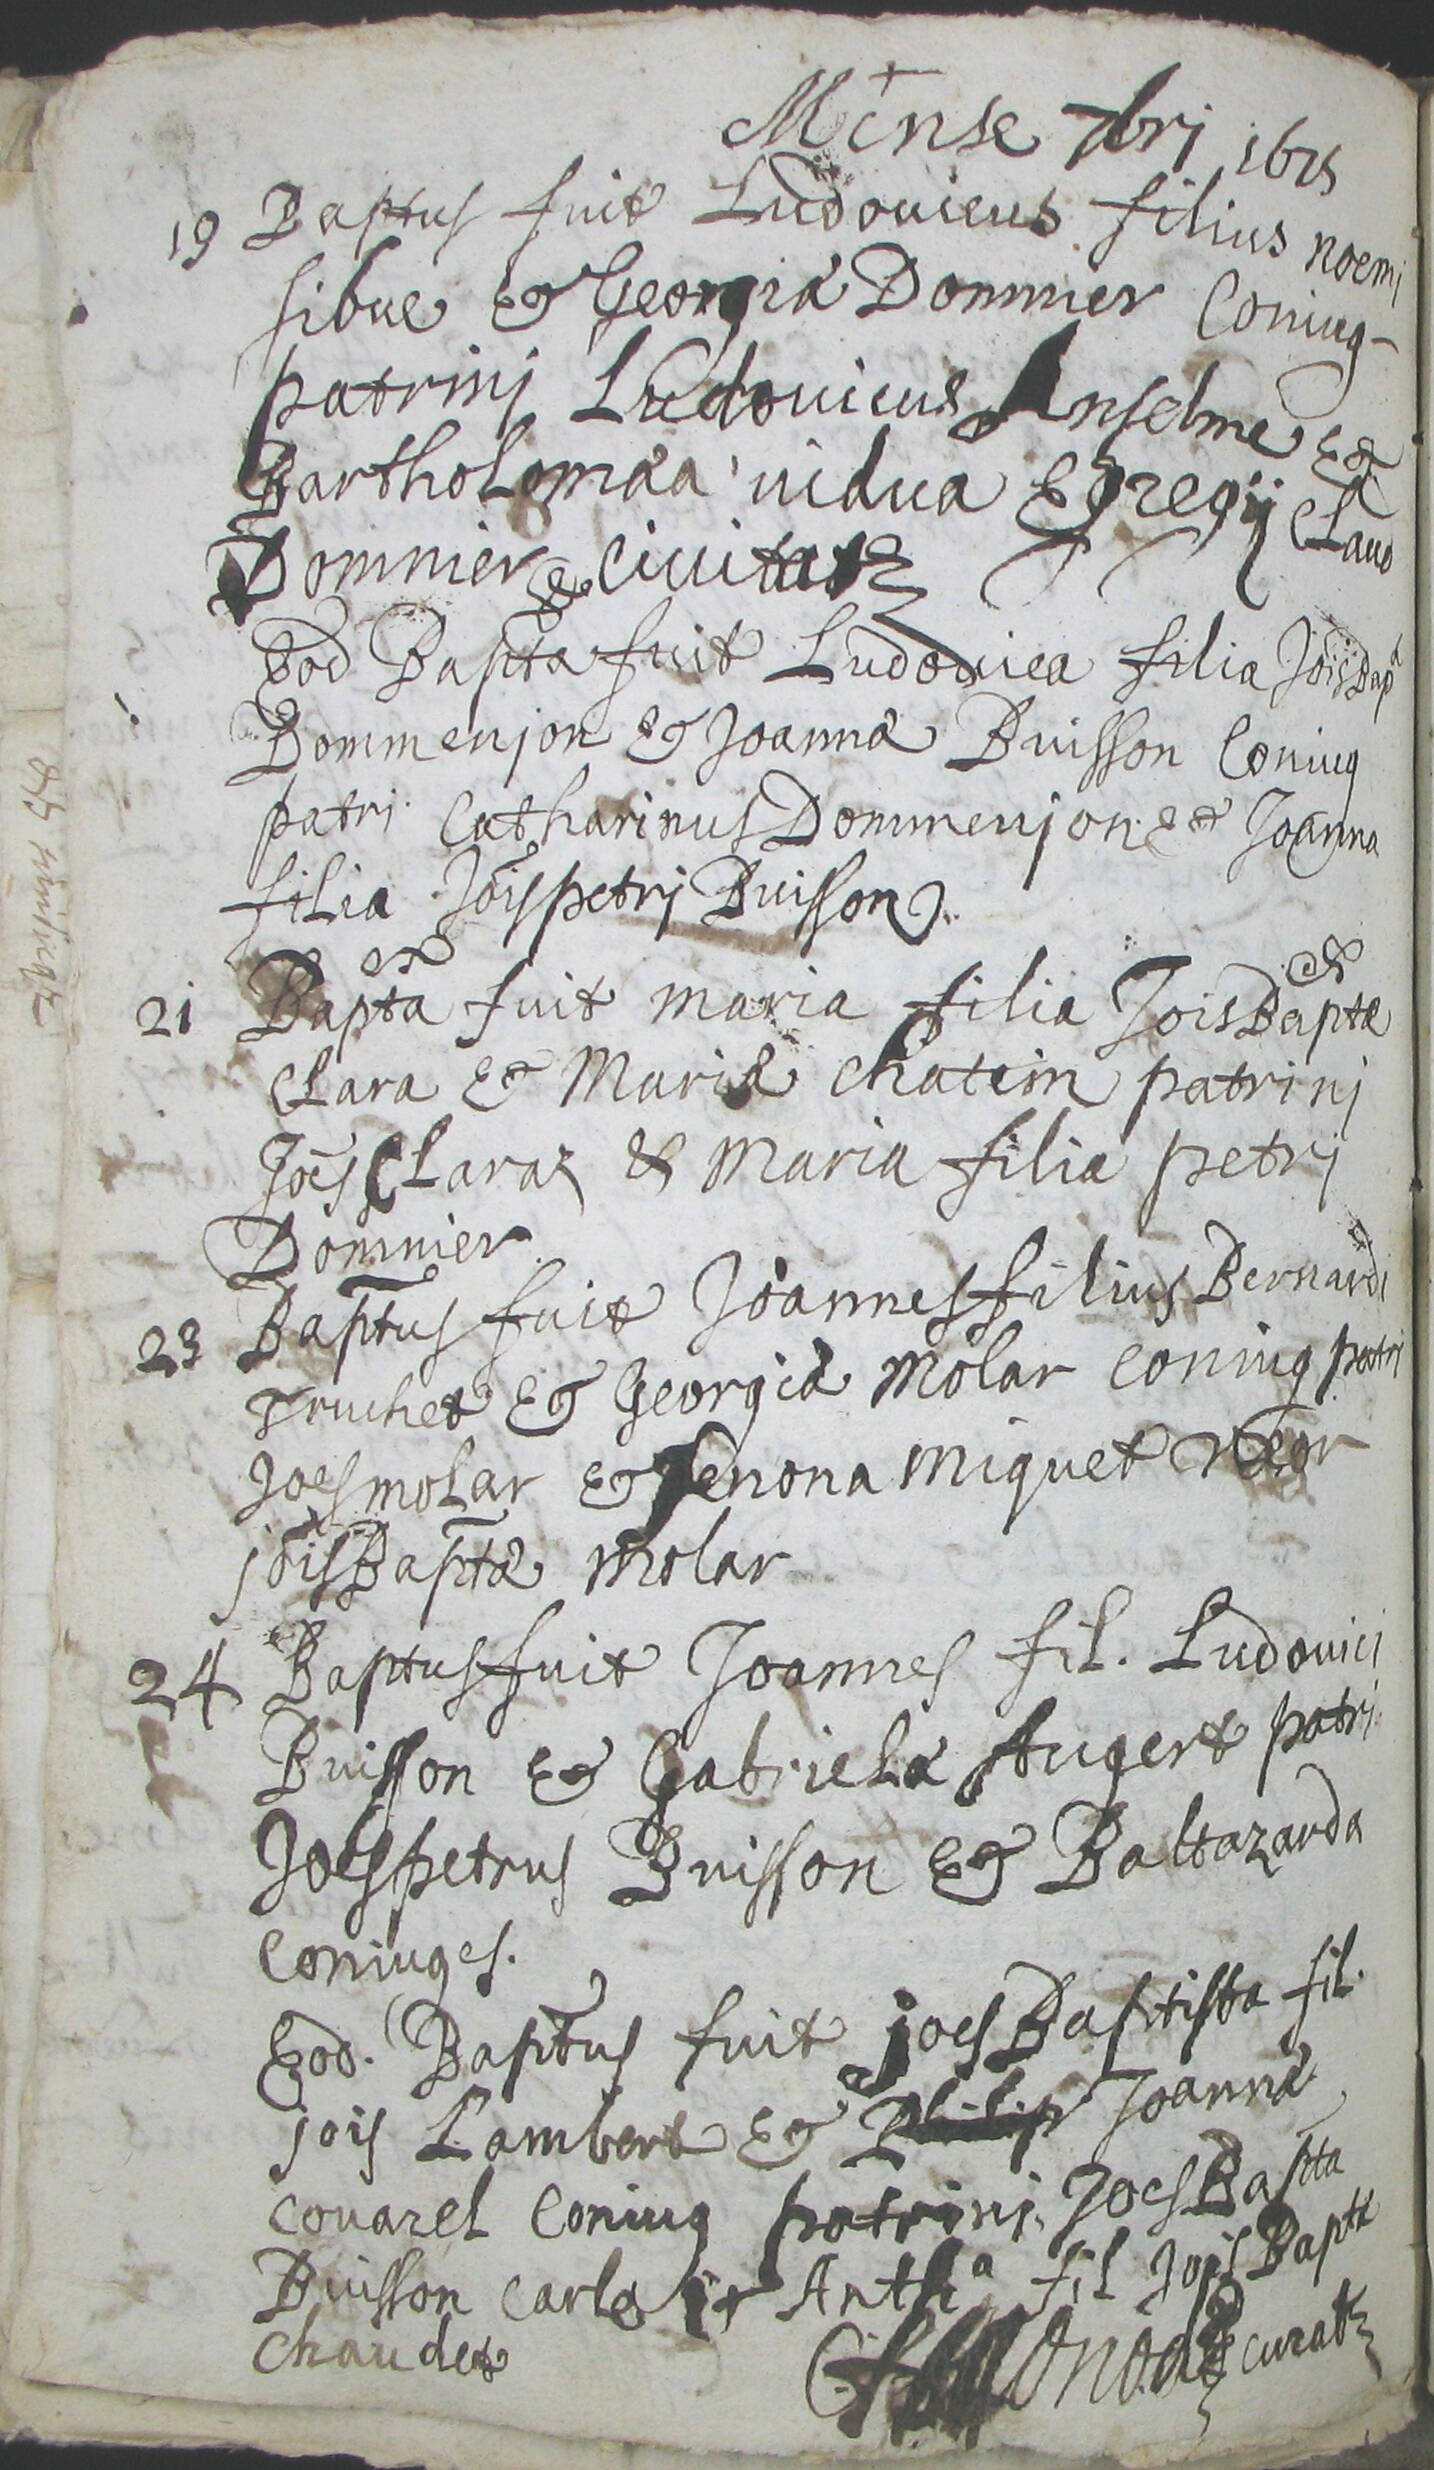 Mense 7brj
19 Baptus fuit Ludouicus filius noemj
sibue & Georgiæ Dommier Coniug
patrinj Ludouicus Anselme &
Bartholomæa vidua Egregij Claud
Dommier & Ciuitat
Eod Bapta fuit Ludouica filia Jois Bapt
Dommenjon & Joannæ Buisson Coniug
patri. Catharinus Dommenjon & Joanna
filia Jois petri Buisson
21 Bapta fuit maria filia Jois Baptæ
Clara & Mariæ Chatein patrinj
Joes Claraz & Maria filia petrj
Domnier
23 Baptus fuit Joannes filius Bernardi
Truchet & Georgiæ Molar coniug patrj
Joes molar & Jenona miquet vxor
jois Baptæ molar
24 Baptus fuit Joannes fil. Ludouici
Buisson & Gabrielæ Augert patri.
Joes petrus Buisson & Baltazarda
Coniuges.
Eod. Baptus fuit joes Baptista fil.
jois Lambert & Joannæ
Couarel Coniug patrinj. Joes Bapta
Buisson Carle Antha fil Jois Baptæ
Chaudet
curat